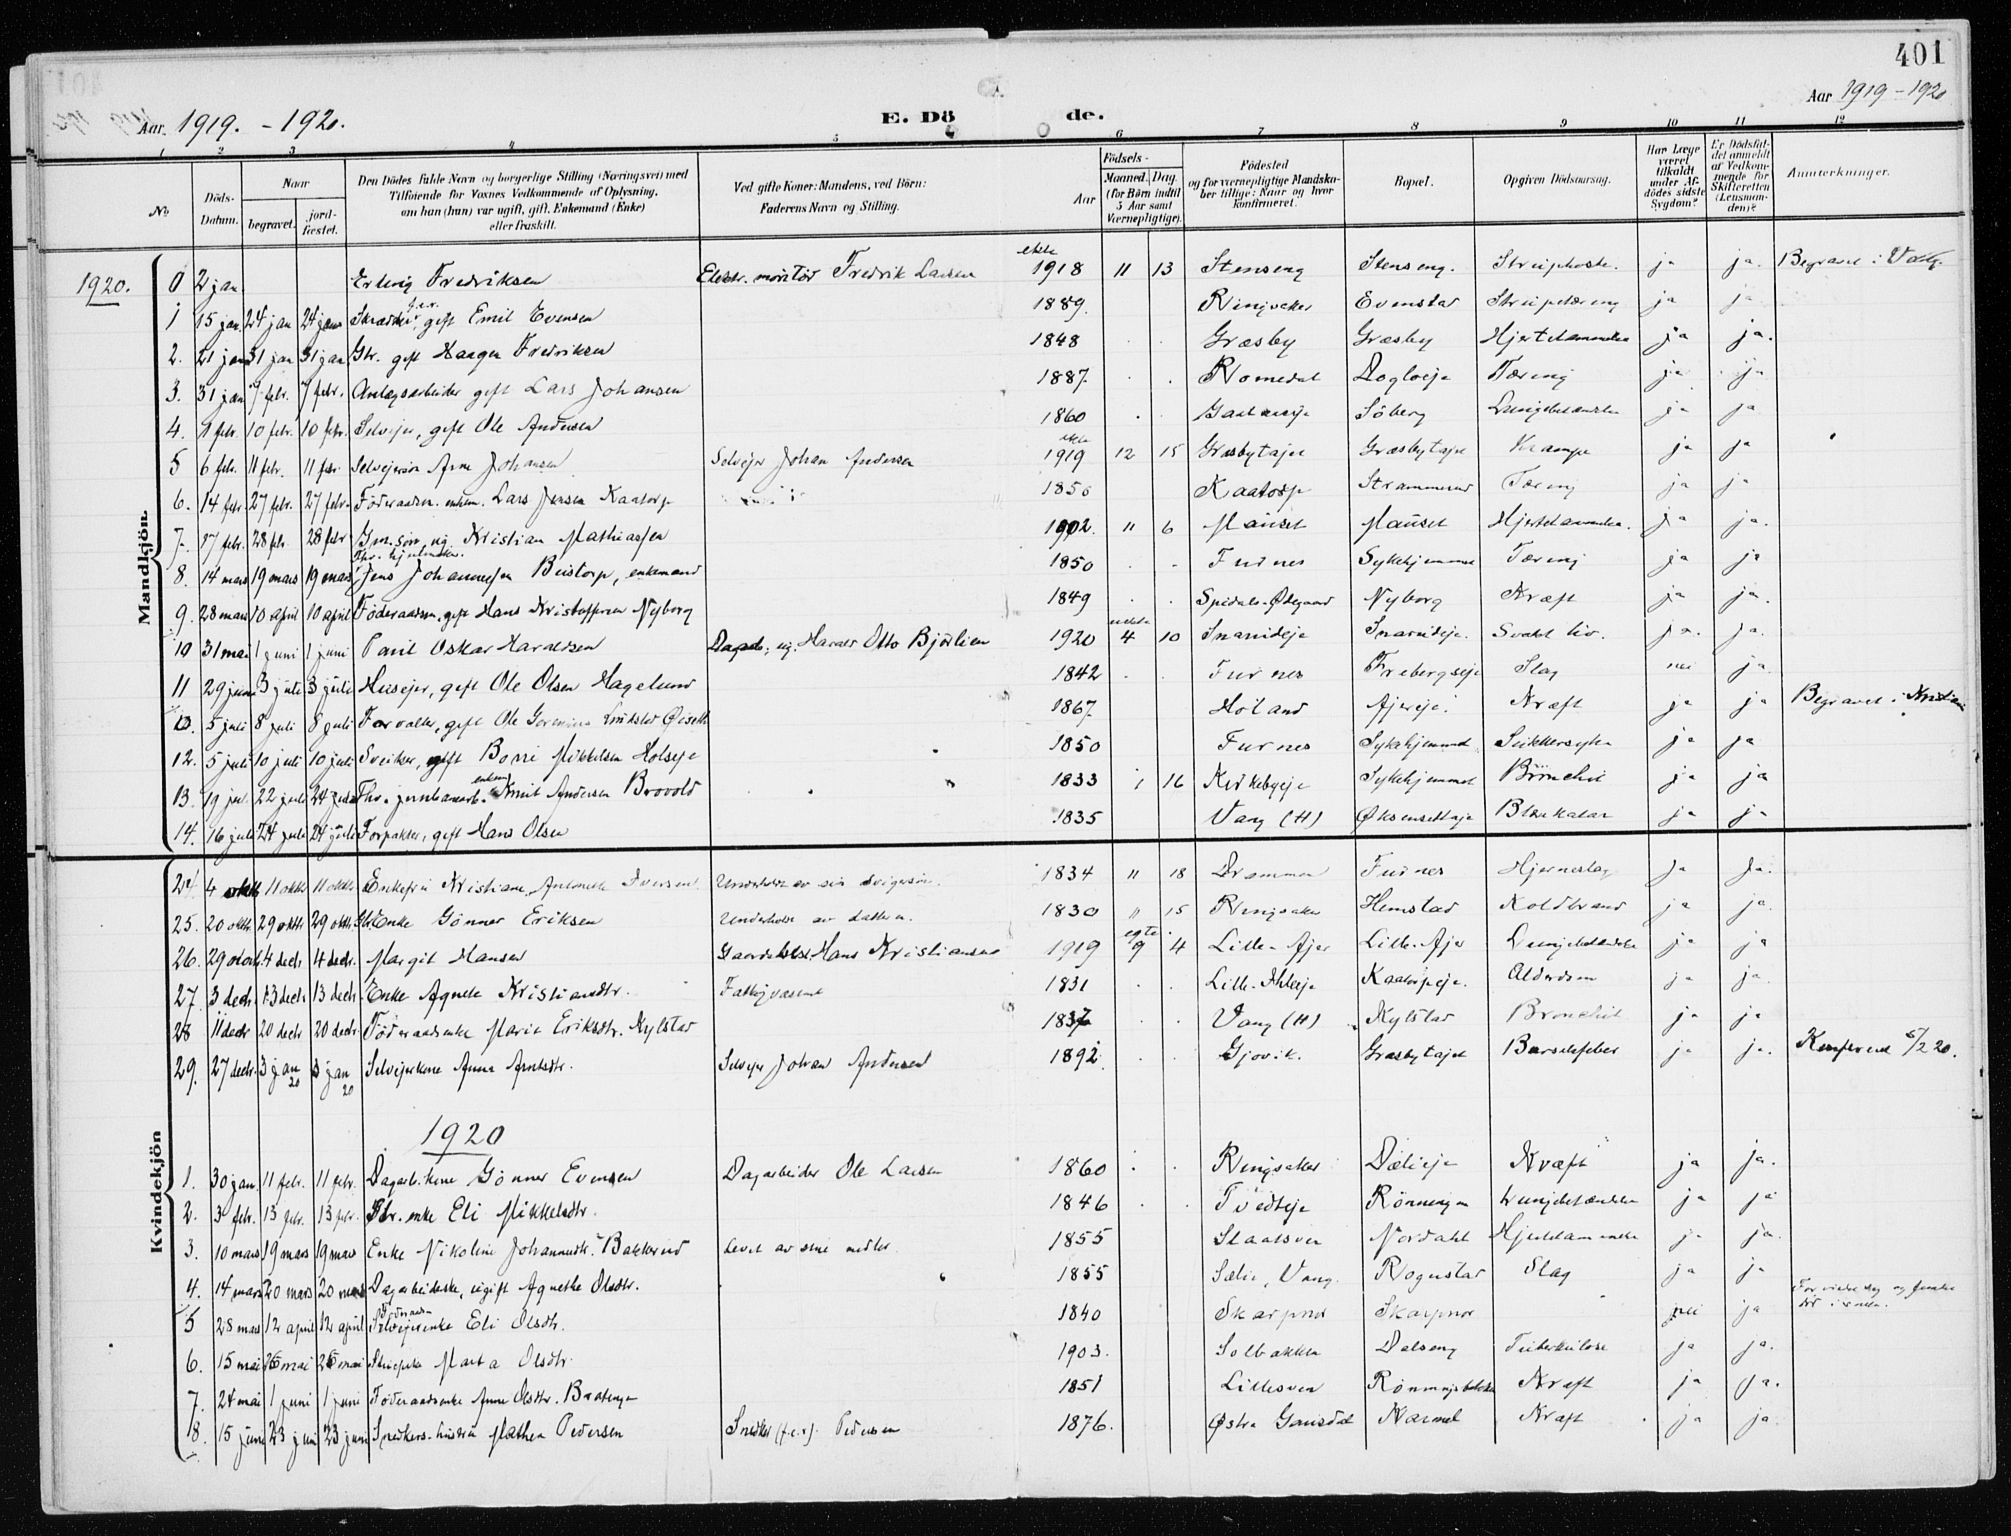 401
Aar 1919. - 1920. E. Dö de. Aar 1919-1920
1 2 3 4 5 6 7 8 9 10 11 12
No
Döds-Datum.
Naar
begravet.
jord-fæstet.
Den Dödes fulde Navn og borgerlige Stilling (Næringsvei) med
Tilföiende for Voxnes Vedkommende af Oplysning,
om han (hun) var ugift, gift, Enkemand (Enke)
eller fraskilt.
Ved gifte Koner: Mandens, ved Börn:
Faderens Navn og Stilling.
Födsels-
Aar
Maaned. Dag.
(for Börn indtil
5 Aar samt
Værnepligtige).
Födested
og for værnepligtige Mandska-
ber tillige: Naar og hvor
konfirmeret.
Bopæl.
Opgiven Dödsaarsag.
Har Læge
været
tilkaldt
under Af-
dödes sidste
Sygdom?
Er Dödsfal-
det anmeldt
af Vedkom-
mende for
Skifteretten
(Lensman-
den)?
Anmerkninger.
Mandkjön.
1920. 0 2 jan Erling Fredriksen Elektr. montör Fredrik Larsen ekte 1918 11 13 Stenseng Stenseng. Strupehoste. ja ja. Begravet i Vang.
1 15 jan. 24 jan 24 jan Skrædder, gift Emil Evensen 1889. Ringsaker Evenstad Strupetæring ja ja
2. 21 jan 31 jan 31 jan Gbr. gift Haagen Fredriksen 1848 Græsby Græsby Hjertelammelse ja ja.
3. 31 jan 7 febr. 7 febr. Anlægsarbeider gift Lars Johansen 1887. Romedal Tæring ja ja
4. febr. 10 febr. 10 febr. Selveier, gift Ole Andersen 1860 Söberg Lungebetændelse ja ja
5 6 febr. 11 febr. 11 febr Selveiersön Arne Johansen Selveier Johan Andersen ekte 1919 12 15 Græsbytajet Græsbytajet Krampe ja ja
6. 14 febr. 27 febr. 27 febr. Föderaadsm. enkem. Lars Jensen Kaatorp 1850 Kaatorp Strammerud Tæring ja ja
7. 17 febr. 28 feb. 28 febr Gm. sön, ug. Kristian Mathiassen 1902. 11 6 Mauset Mauset Hjertelammelse. ja ja.
8. 14 mars 19 mars 19 mars Jens Johannessen Bustorp, enkemand 1850 Furnes Sykehjemmet Tæring ja ja
9. 28 mars 10 april 10 april Föderaadsm, gift Hans Kristoffersen Nyborg 1849 Spidals-Ødegaard Nyborg Kræft ja ja.
10 31 mai 1 juni 1 juni Paul Oskar Haraldsen Dagarb., ug. Harald Otto Björlien uekte 1920 4 10 Snarudeje Snarudeje. Svakt liv. ja. ja.
11 29 juni 3 juli 3 juli Huseier, gift Ole Olsen Hagelund 1842 Furnes Frebergseje Slag nei ja
5 juli 8 juli 8 juli Forvalter, gift Ole 1867. Höland Ajereje. Kræft ja ja Begravet i
12. 5 juli 10 juli 10 juli gift Borri Mikkelsen Holseje 1850 Furnes Sykehjemmet Sukkersyke ja ja
13. 19 jul. 22 juli 24 juli enkem. Knut Andersen Brovold 1833 1 16 Kirkebyeje Sykehjemmet Bronchit ja ja
14. 16 juli 24 juli 24 juli Forpakter, gift Hans Olsen 1835 Vang (H) Øksensettaje Blærekatar ja ja
Kvindekjön
24. 4 oktb 11 oktb 11 oktb Enkefru Kristiane Antonette Iversen Underholdt av sin svigersön. 1834 11 18 Drammen Furnes Hjerneslag ja ja.
25. 20 oktb 29 oktb 29 oktb Gbr. Enke Gönner Eriksen Underholdt av datteren. 1830 11 15 Ringsaker Hemstad Koldbrand ja ja.
26. 29 4 decb 4 decb. Margit Hansen Hans Kristiansen egte 1919 9 4 Lille-Ajer Lille-Ajer Lungebetændelse ja ja
27 3 decb. 13 decb 13 decb. Enke Agnete Kristiansdtr. Fattigvæsenet 1831 Kaatorpeje. Alderdom ja ja.
28 11 decb 20 decb 20 decb. Föderaadsenke Marie Eriksdtr. Nylstad 1837 Vang (H) Nylstad Bronchit ja ja
29. 27 decb. 3 jan 20 3 jan 20 Selveierkone Anna Arntsdtr. Selveier Johan Andersen 1892. Gjövik. Græsbytajet Barselfeber ja ja. 5/2 20.
1920
1. 30 jan. 11 febr. 11 febr. Dagarb.kone Gönner Evensen Dagarbeider Ole Larsen 1860 Ringsaker Dælieje Kræft ja ja.
2. 3 febr. 13 febr. 13 febr. Gbr. enke Eli Mikkelsdtr. 1846 Tvedteje Rönningen Lungebetændelse ja ja
3. 10 mars 19 mars 19 mars Enke Nikoline Johannesdtr. Bakkerud Levet av sine midler. 1855 Staalsven Nordahl Hjertelammelse ja ja.
4. 14 mars 20 mars 20 mars Dagarbeiderske, ugift Agnethe Olsdtr. 1855 Sælie, Vang. Rognstad Slag ja ja
5 28 mars 12 april 12 april Selveierenke Eli Olsdtr. 1840 Skarpnor Skarpnor nei ja
6. 15 mai 26 mai 26 mai Marta Olsdtr. 1903. Solbakken Dalseng Tuberkulose ja ja.
7. 24 mai 1 juni 1 juni Föderaadsenke Anne Olsdtr. Bratenge 1851 Lillesven Kræft ja ja.
8. 15 juni 23 juni 23 juni Snedkers-hustru Mathea Pedersen Snedker (f.e.r.) Pedersen 1876. Østre Gausdal Karmel Kræft ja ja.